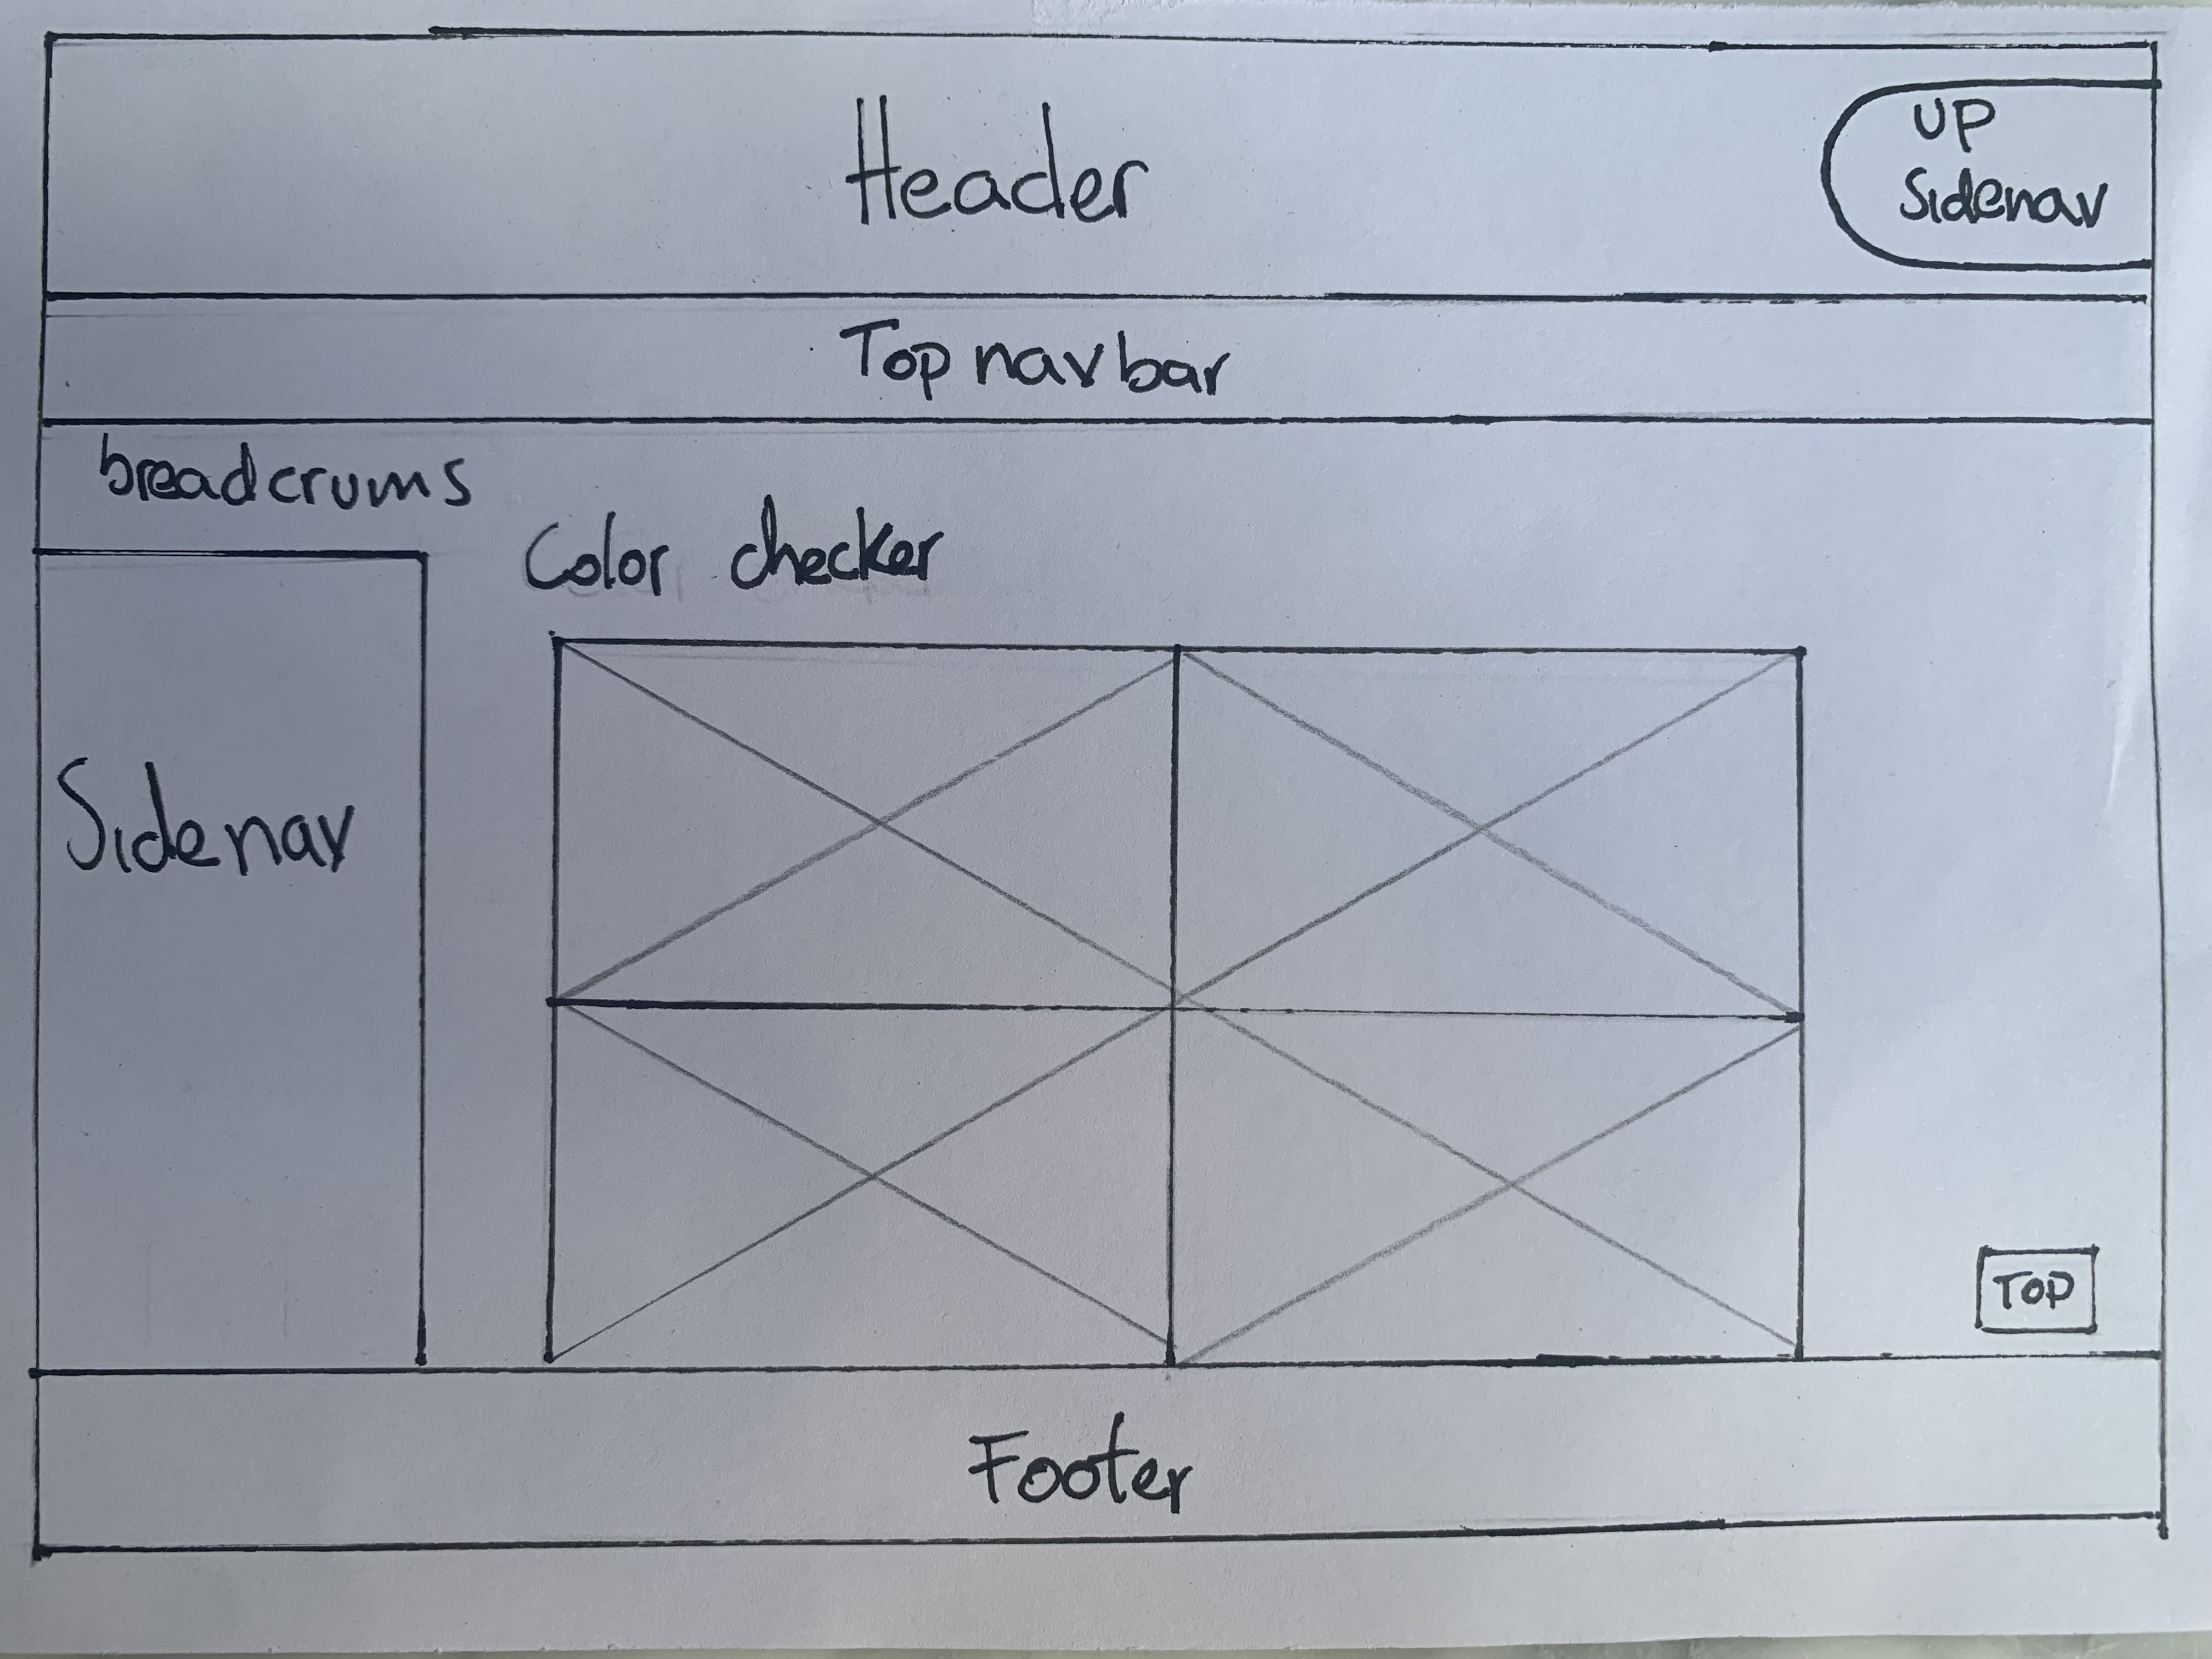 Header
UP
Sidenav
Top navbar
breadcrums
Color checker
Sidenav
TOP
Footer